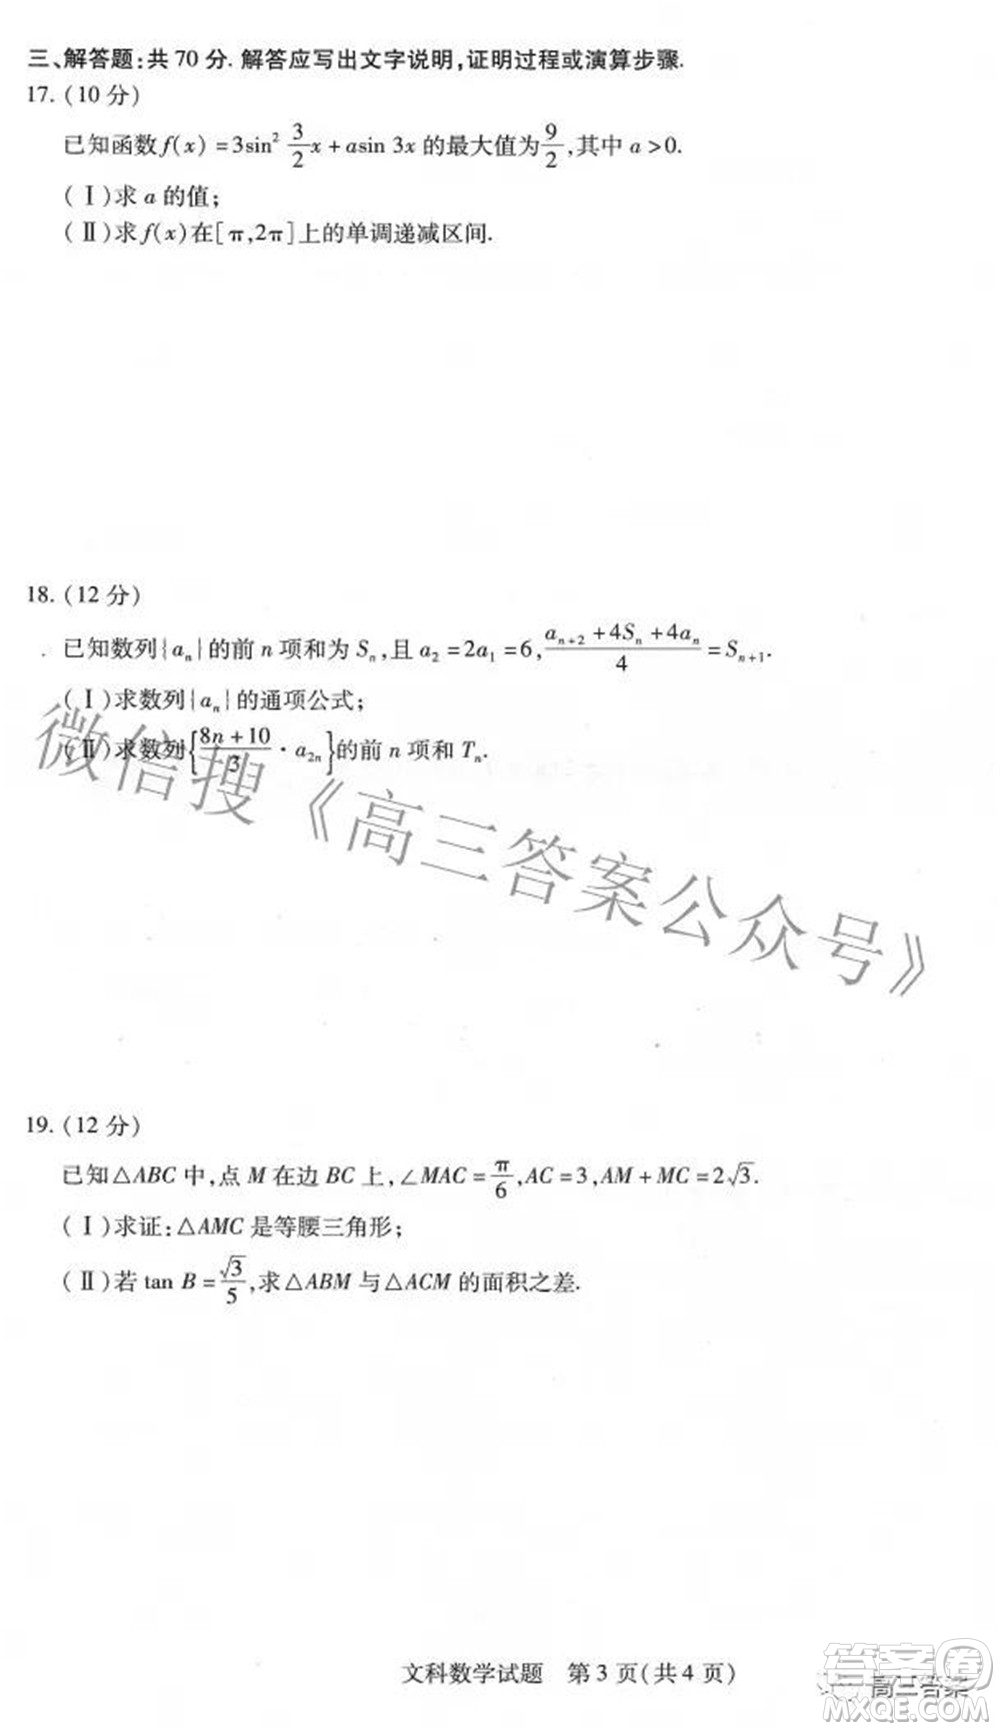 三、解答题：共 70 分. 解答应写出文字说明，证明过程或演算步骤.
17. (10 分)
已知函数 f(x) = 3sin² 3/2 x + asin 3x 的最大值为 9/2，其中 a > 0.
(Ⅰ)求 a 的值；
(Ⅱ)求 f(x) 在 [π, 2π] 上的单调递减区间.
18. (12 分)
已知数列{aₙ}的前 n 项和为 Sₙ，且 a₂ = 2a₁ = 6, (aₙ₊₂ + 4Sₙ + 4aₙ)/4 = Sₙ₊₁.
(Ⅰ)求数列{aₙ}的通项公式；
(Ⅱ)求数列{(8n + 10)/3 · a₂ₙ}的前 n 项和 Tₙ.
微信搜《高三答案公众号》
19. (12 分)
已知△ABC 中，点 M 在边 BC 上，∠MAC = π/6, AC = 3, AM + MC = 2√3.
(Ⅰ)求证：△AMC 是等腰三角形；
(Ⅱ)若 tan B = √3/5，求△ABM 与△ACM 的面积之差.
文科数学试题 第 3 页(共 4 页)
高三答案
答案圈
MXQE.COM